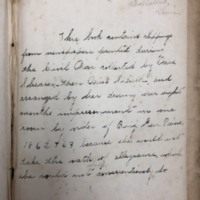 This book contains clippings
from newspapers printed during
the Civil War collected by
and
arranged by her during her eight
months imprisonment in one
room by order of Brig. Gen. Paine,
1862 & 63 because she would not
take the oath of allegiance, which
she could not conscientiously do